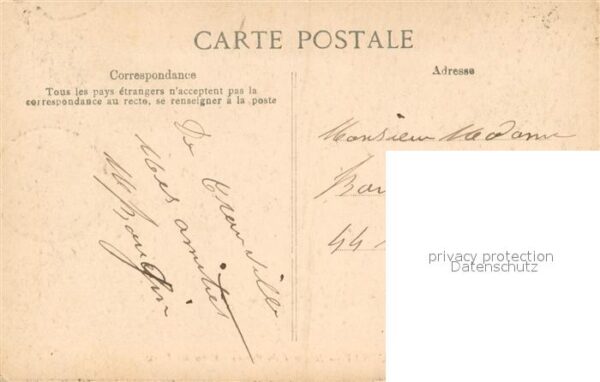 CARTE POSTALE
Correspondance
Tous les pays étrangers n'acceptent pas la
correspondance au recto, se renseigner à la poste
De Granville
Mes amitiés
Adresse
Monsieur Madame
44
privacy protection
Datenschutz